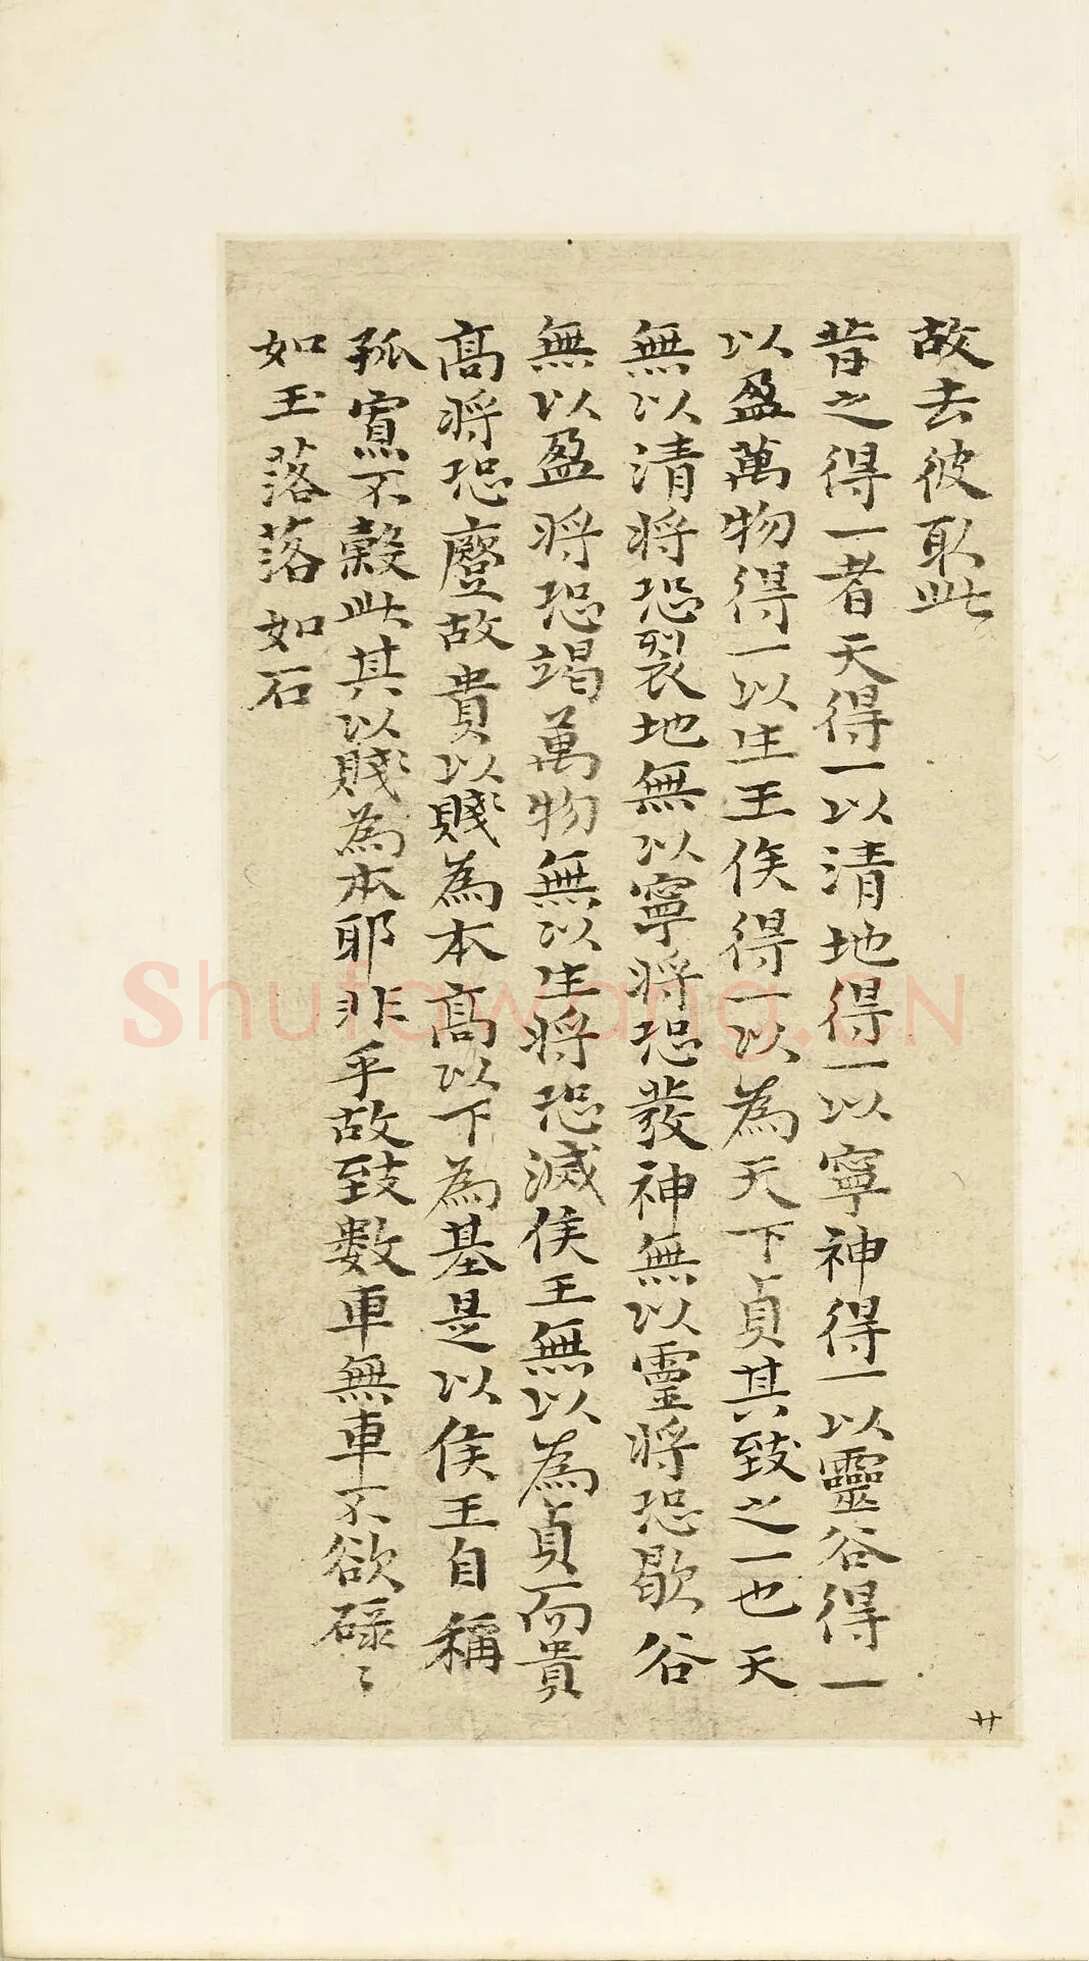 故去彼取此
昔之得一者天得一以清地得一以寧神得一以靈谷得一
以盈萬物得一以生王侯得一以為天下貞其致之一也天
無以清將恐裂地無以寧將恐發神無以靈將恐歇谷
無以盈將恐竭萬物無以生將恐滅侯王無以為貞而貴
高將恐蹷故貴以賤為本高以下為基是以侯王自稱
孤寡不穀此其以賤為本耶非乎故致數車無車不欲碌〻
如玉落落如石
廿
Shufawang.CN